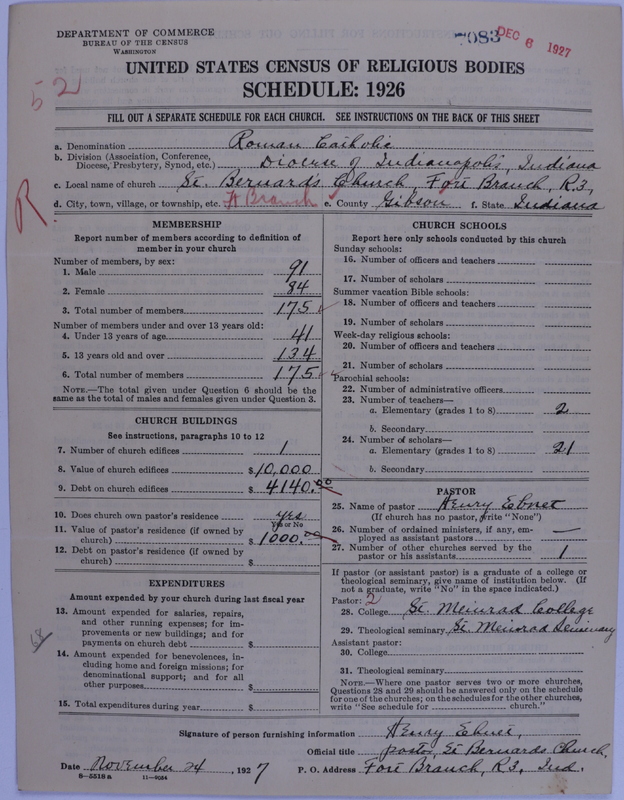 DEPARTMENT OF COMMERCE
BUREAU OF THE CENSUS
WASHINGTON
7083
DEC 6 1927
UNITED STATES CENSUS OF RELIGIOUS BODIES
SCHEDULE: 1926
52
FILL OUT A SEPARATE SCHEDULE FOR EACH CHURCH. SEE INSTRUCTIONS ON THE BACK OF THIS SHEET
a. Denomination Roman Catholic
b. Division (Association, Conference, Diocese, Presbytery, Synod, etc.) Diocese of Indianapolis, Indiana
c. Local name of church St. Bernard's Church, Fort Branch, R3,
d. City, town, village, or township, etc. Ft Branch e. County Gibson f. State Indiana
R
MEMBERSHIP
Report number of members according to definition of
member in your church
Number of members, by sex:
1. Male 91
2. Female 84
3. Total number of members 175
Number of members under and over 13 years old:
4. Under 13 years of age 41
5. 13 years old and over 134
6. Total number of members 175
NOTE.—The total given under Question 6 should be
same as the total of males and females given under Question 3.
CHURCH BUILDINGS
See instructions, paragraphs 10 to 12
7. Number of church edifices 1
8. Value of church edifices $10,000
9. Debt on church edifices $4140.00
10. Does church own pastor's residence yes
Yes or No
11. Value of pastor's residence (if owned by
church) $1000.
12. Debt on pastor's residence (if owned by
church) $
EXPENDITURES
Amount expended by your church during last fiscal year
13. Amount expended for salaries, repairs,
and other running expenses; for im-
provements or new buildings; and for
payments on church debt $
14. Amount expended for benevolences, in-
cluding home and foreign missions; for
denominational support; and for all
other purposes $
15. Total expenditures during year $
CHURCH SCHOOLS
Report here only schools conducted by this church
Sunday schools:
16. Number of officers and teachers
17. Number of scholars
Summer vacation Bible schools:
18. Number of officers and teachers
19. Number of scholars
Week-day religious schools:
20. Number of officers and teachers
21. Number of scholars
Parochial schools:
22. Number of administrative officers
23. Number of teachers—
a. Elementary (grades 1 to 8) 2
b. Secondary
24. Number of scholars—
a. Elementary (grades 1 to 8) 21
b. Secondary
PASTOR
25. Name of pastor Henry Ebnet
(If church has no pastor, write "None")
26. Number of ordained ministers, if any, em-
ployed as assistant pastors —
27. Number of other churches served by the
pastor or his assistants 1
If pastor (or assistant pastor) is a graduate of a college or
theological seminary, give name of institution below. (If
not a graduate, write "No" in the space indicated.)
Pastor: 2
28. College St. Meinrad College
29. Theological seminary St. Meinrad Seminary
Assistant pastor:
30. College
31. Theological seminary
NOTE.—Where one pastor serves two or more churches,
Questions 28 and 29 should be answered only on the schedule
for one of the churches; on the schedules for the other churches,
write "See schedule for church."
Signature of person furnishing information Henry Ebnet,
Official title pastor, St Bernards Church,
Date November 24, 1927 P. O. Address Fort Branch, R3, Ind.
8-5518a 11-9054